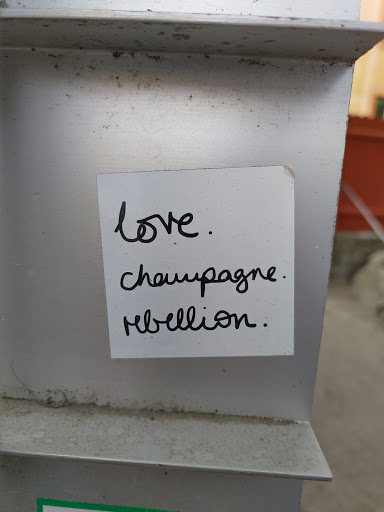 love.
champagne.
rebellion.